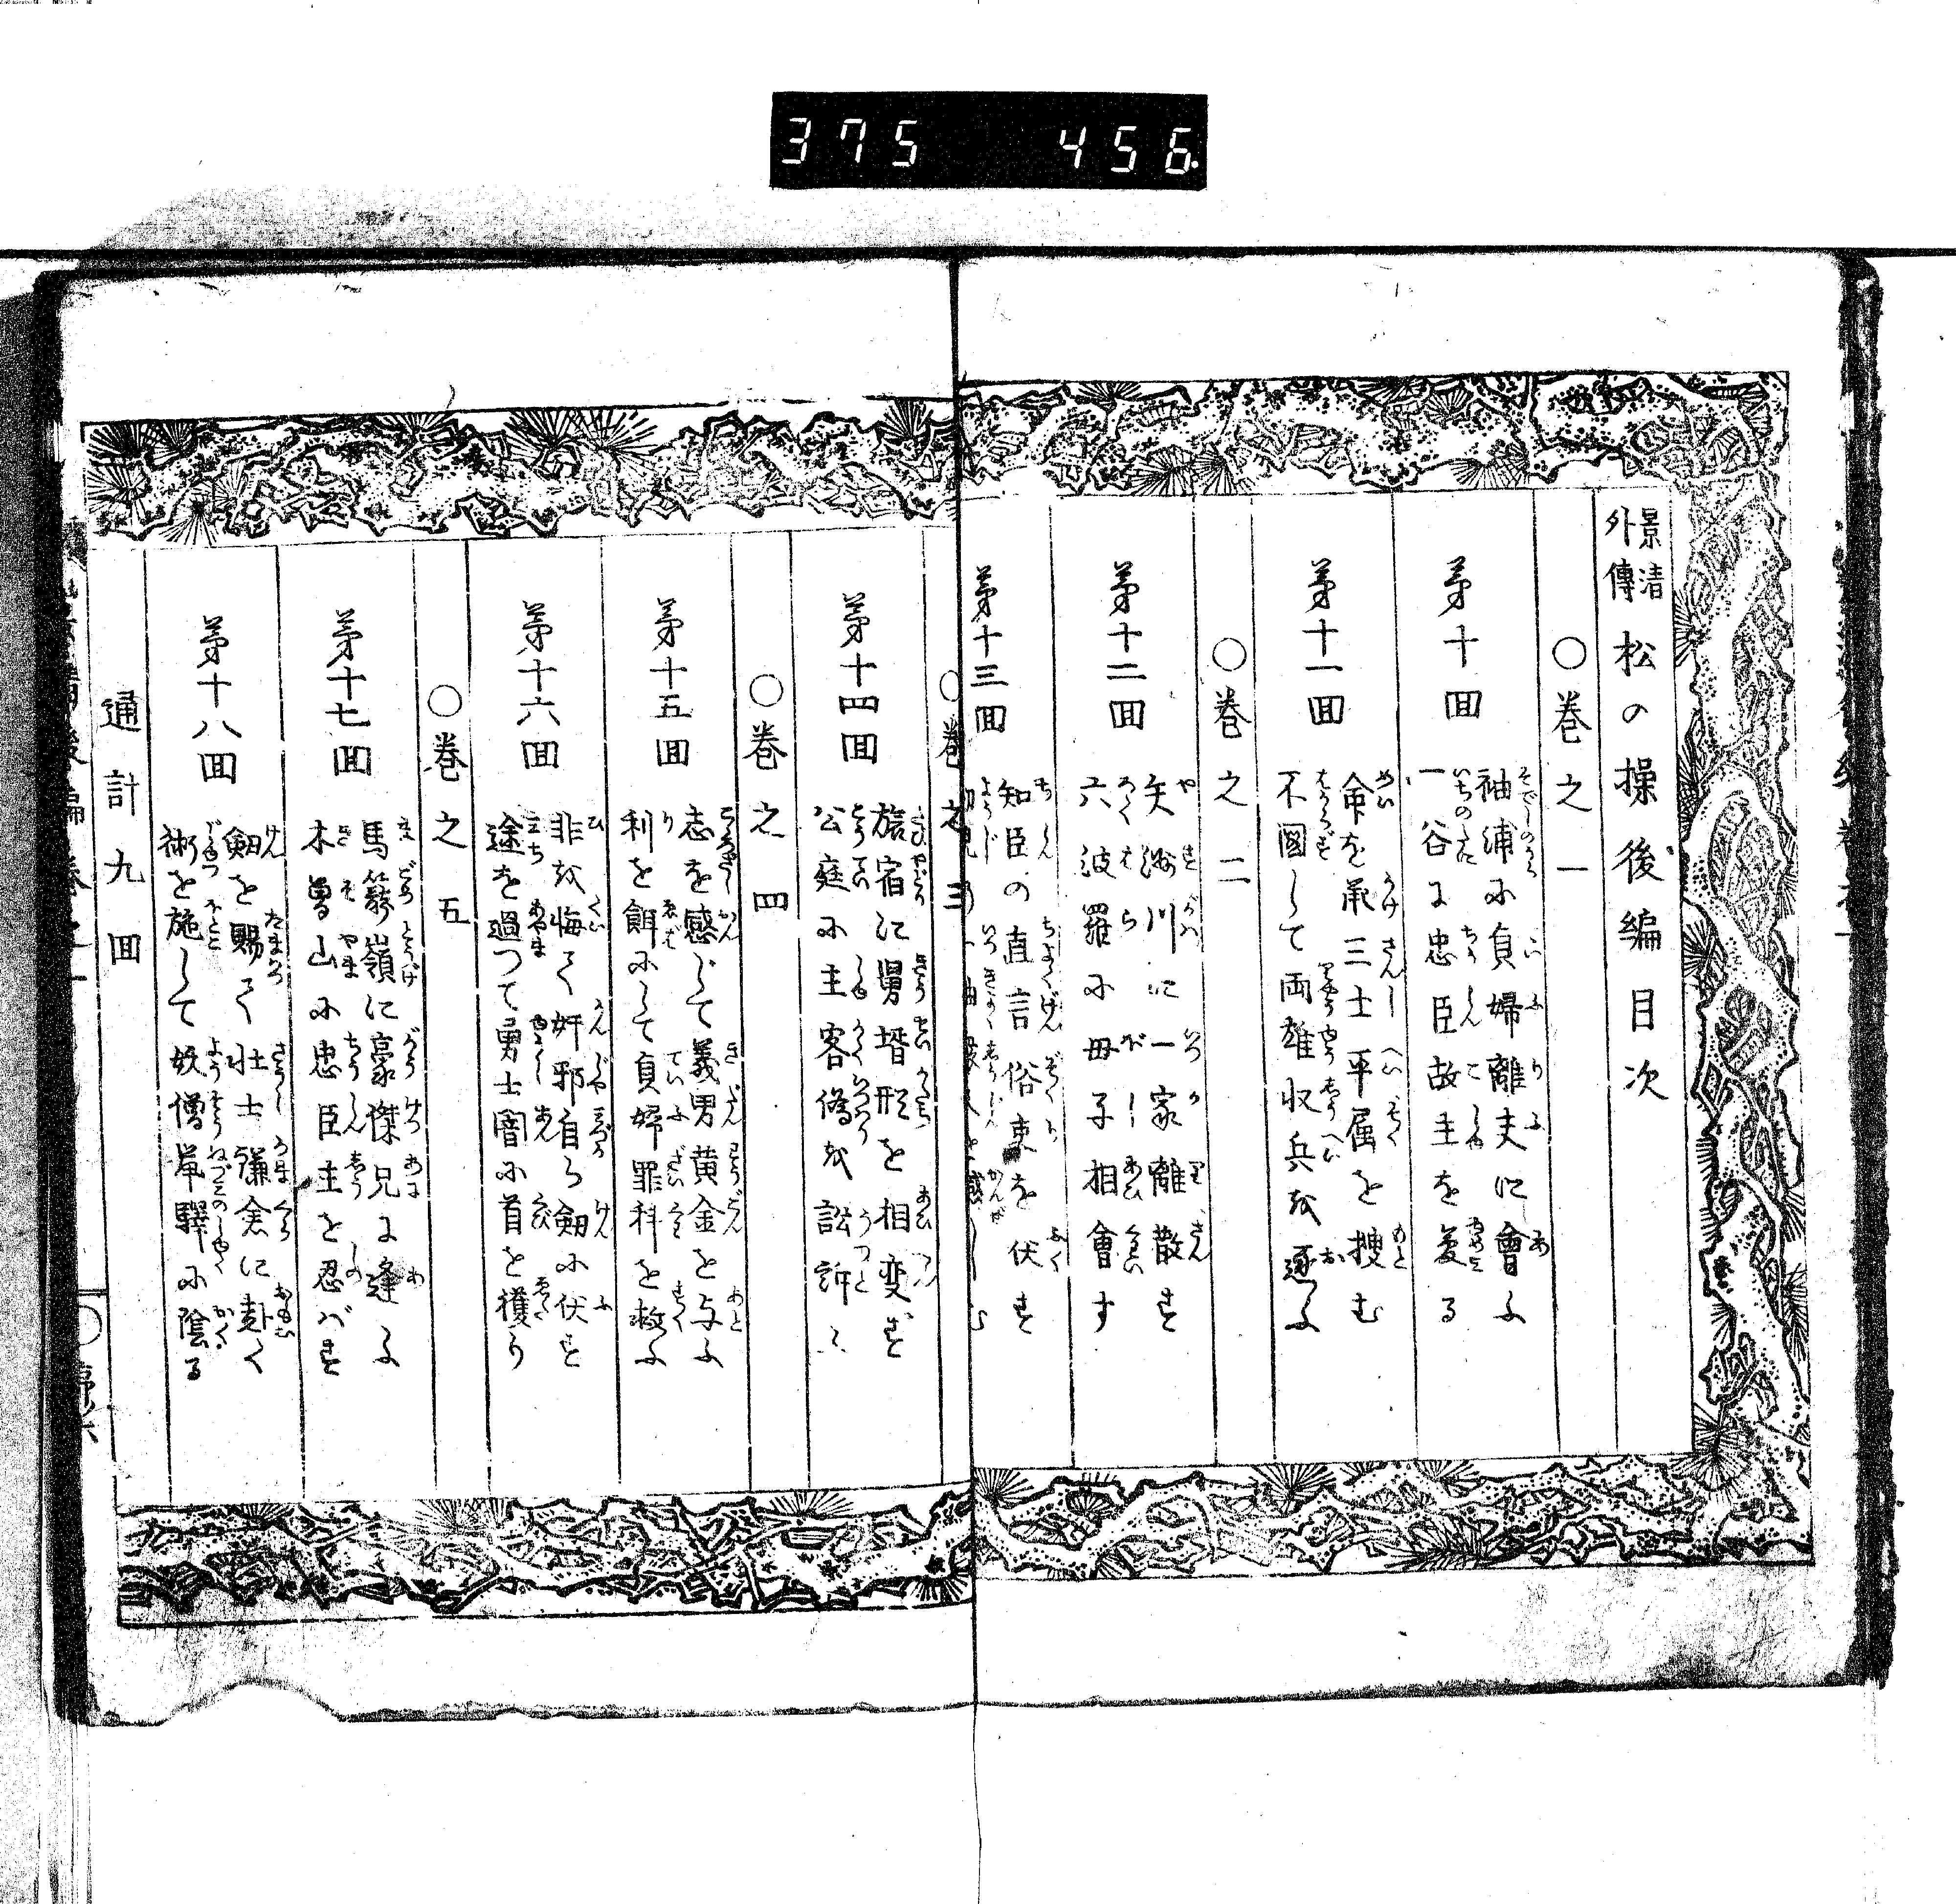 375 456
景清
外傳
松の操後編目次
○巻之一
第十回
袖浦に貞婦離夫に會ふ
一谷に忠臣故主を
第十一回
命を承三士平属を捜む
不圖して両雄収兵を逐ふ
○巻之二
第十二回
矢渕川に一家離散す
六波羅に母子相會す
第十三回
知臣の直言俗吏を伏す
○巻之三
第十四回
旅宿に舅壻形を相変ず
公庭に主客偽を訟訴
○巻之四
第十五回
志を感じて義男黄金を与ふ
利を餌にして貞婦罪科を救ふ
第十六回
非を悔て奸邪自ら劔に伏す
途を過つて勇士闇に首を獲り
○巻之五
第十七回
馬籠嶺に豪傑兄に逢ふ
木曽山に忠臣主を忍バす
第十八回
劔を賜て壮士鎌倉に赴く
術を施して妖僧 驛に陰る
通計九回